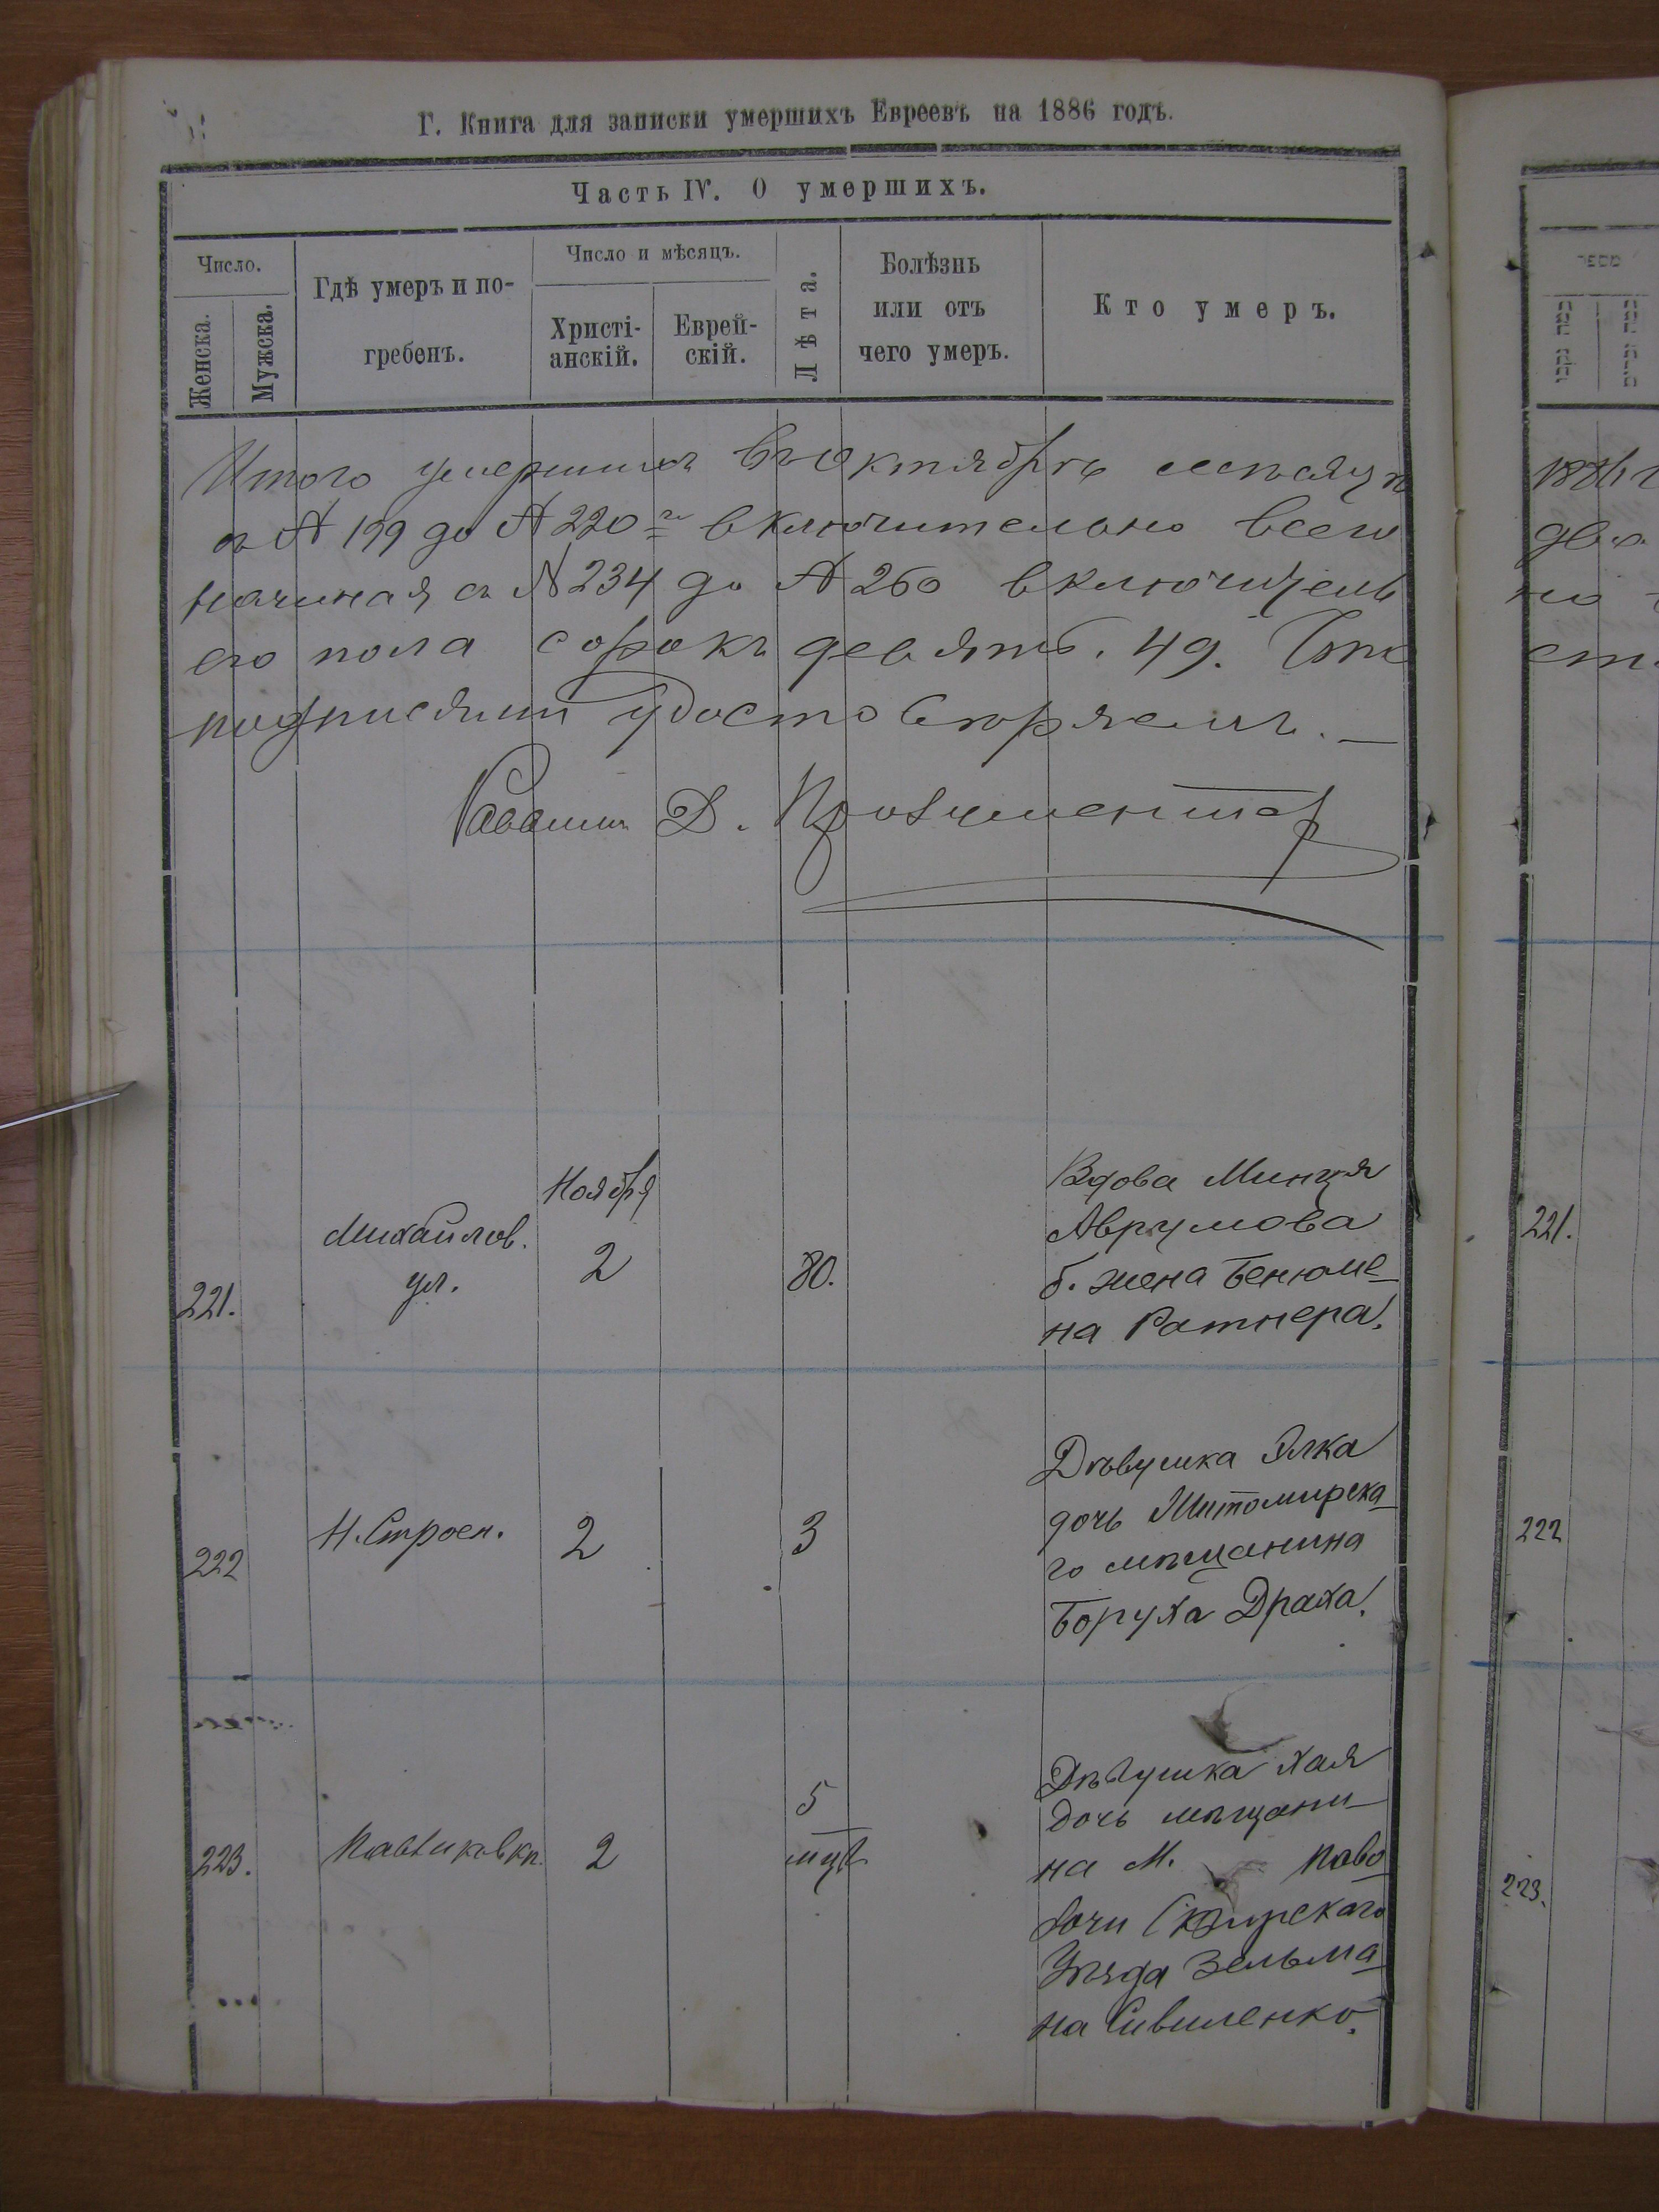 Г. Книга для записки умершихъ Евреевъ на 1886 годъ.
Часть IV. О умершихъ.
Число.
Женска.
Мужска.
Гдѣ умеръ и по-
гребенъ.
Число и мѣсяцъ.
Христі-
анскій.
Еврей-
скій.
Лѣта.
Болѣзнь
или отъ
чего умеръ.
Кто умеръ.
Итого умершихъ въ Октябрѣ мѣсяцѣ
съ № 199 до № 220 включительно всего
начиная съ № 234 до № 260 включитель
его пола сорокъ девять. 49. Что
подписями удостовѣряемъ. —
Раввинъ Д.
221.
Михайлов.
ул.
Ноября
2
80.
Вдова Минця
Аврумова
б. жена Бенюме-
на Ратнера.
222
Н. Строен.
2
3
Дѣвушка Элка
дочь Житомирска-
го мѣщанина
Боруха Драха.
223.
2
5
Дѣвушка Хая
дочь мѣщани-
на М. Паво-
лочи Сквирскаго
Уѣзда Зельма-
на Сивиленко.
1886
221.
222
223.